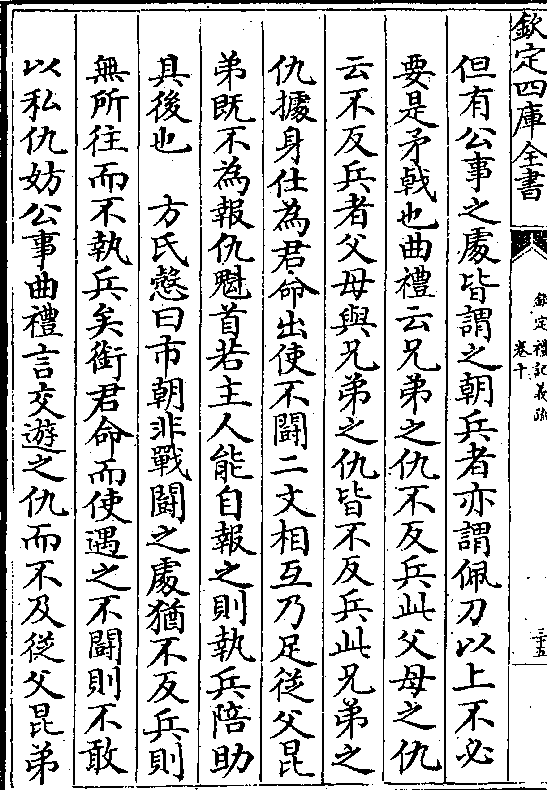 欽定四庫全書
欽定禮記義疏
卷十
二十五
但有公事之處皆謂之朝兵者亦謂佩刀以上不必
要是矛戟也曲禮云兄弟之仇不反兵此父母之仇
云不反兵者父母與兄弟之仇皆不反兵此兄弟之
仇據身仕為君命出使不鬪二文相互乃足從父昆
弟既不為報仇魁首若主人能自報之則執兵陪助
其後也　方氏慤曰市朝非戰鬪之處猶不反兵則
無所往而不執兵矣銜君命而使遇之不鬪則不敢
以私仇妨公事曲禮言交遊之仇而不及從父昆弟